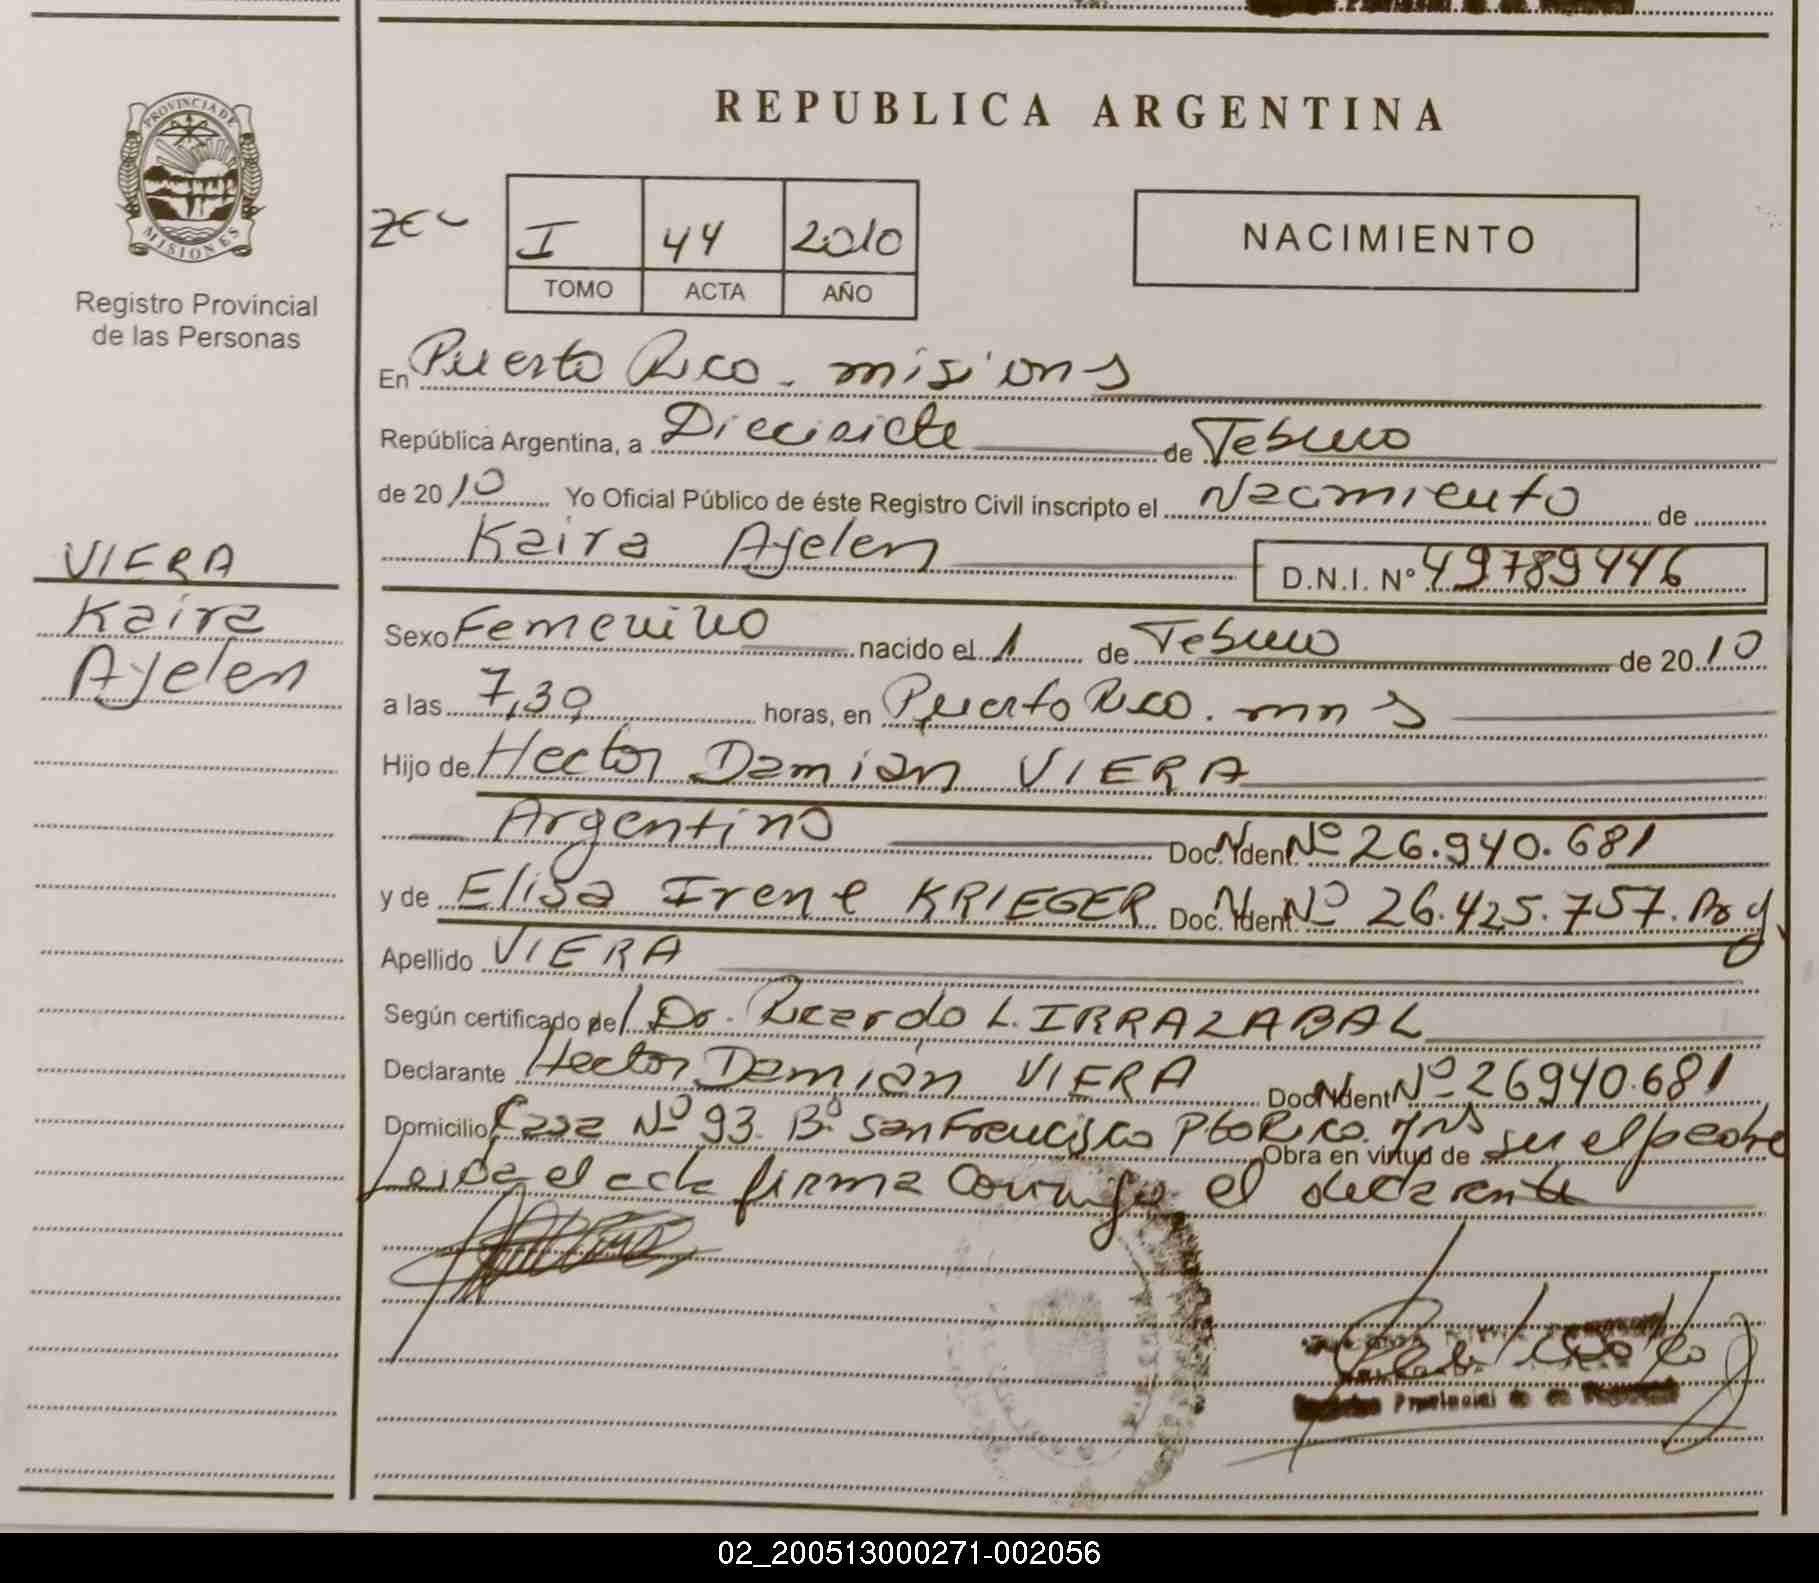 REPUBLICA ARGENTINA
PROVINCIA DE
MISIONES
Registro Provincial
de las Personas
I 44 2010
TOMO ACTA AÑO
NACIMIENTO
En Puerto Rico - misiones
República Argentina, a Diecisiete de Febrero
de 2010 Yo Oficial Público de éste Registro Civil inscripto el Nacimiento de
Kaira Ayelen D.N.I. Nº 49789446
VIERA
Kaira
Ayelen
Sexo Femenino nacido el 1 de Febrero de 2010
a las 7,30 horas, en Puerto Rico. mnes
Hijo de Hector Damian VIERA
Argentino Doc. Ident. Nº 26.940.681
y de Elisa Irene KRIEGER Doc. Ident. Nº 26.425.757. Arg
Apellido VIERA
Según certificado del Dr. Ricardo L. IRRAZABAL
Declarante Hector Damián VIERA Doc. Ident Nº 26940.681
Domicilio Casa Nº 93. Bº San Francisco Pto Rico. Mns Obra en virtud de ser el padre
Leida el acta firma conmigo el declarante
Provincial de
02_200513000271-002056